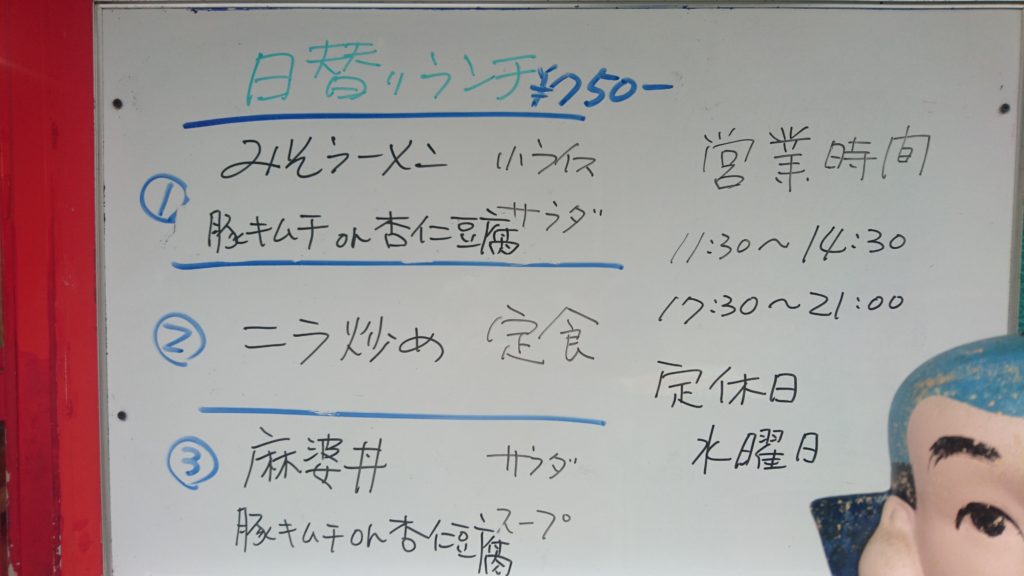 日替りランチ ¥750-
① みそラーメン 小ライス
豚キムチon杏仁豆腐 サラダ
② ニラ炒め 定食
③ 麻婆丼 サラダ
豚キムチon杏仁豆腐 スープ
営業時間
11:30～14:30
17:30～21:00
定休日
水曜日